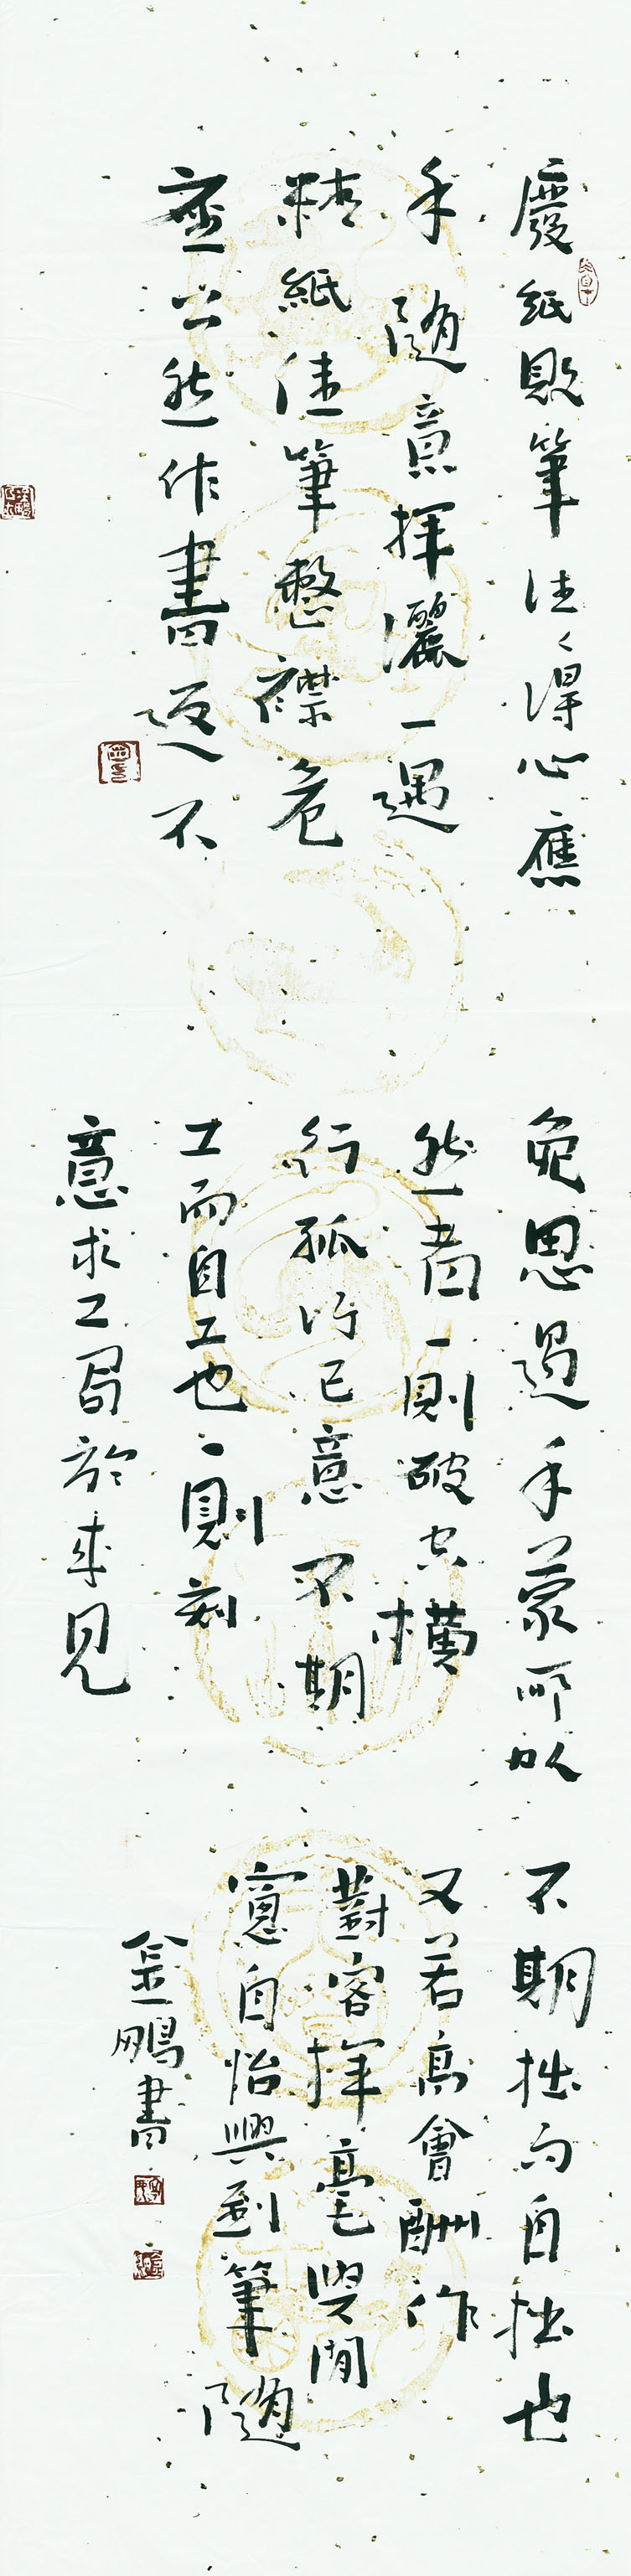 廢紙敗筆往々得心應
手隨意揮灑一遇
精紙佳筆整襟危
座公然作書返不
免思遏手蒙所以
然者一則破空橫
行孤行己意不期
工而自工也一則刻
意求工局於成見
不期拙而自拙也
又若高會酬作
對客揮毫與閒
窻自怡興到筆隨
金鵬書